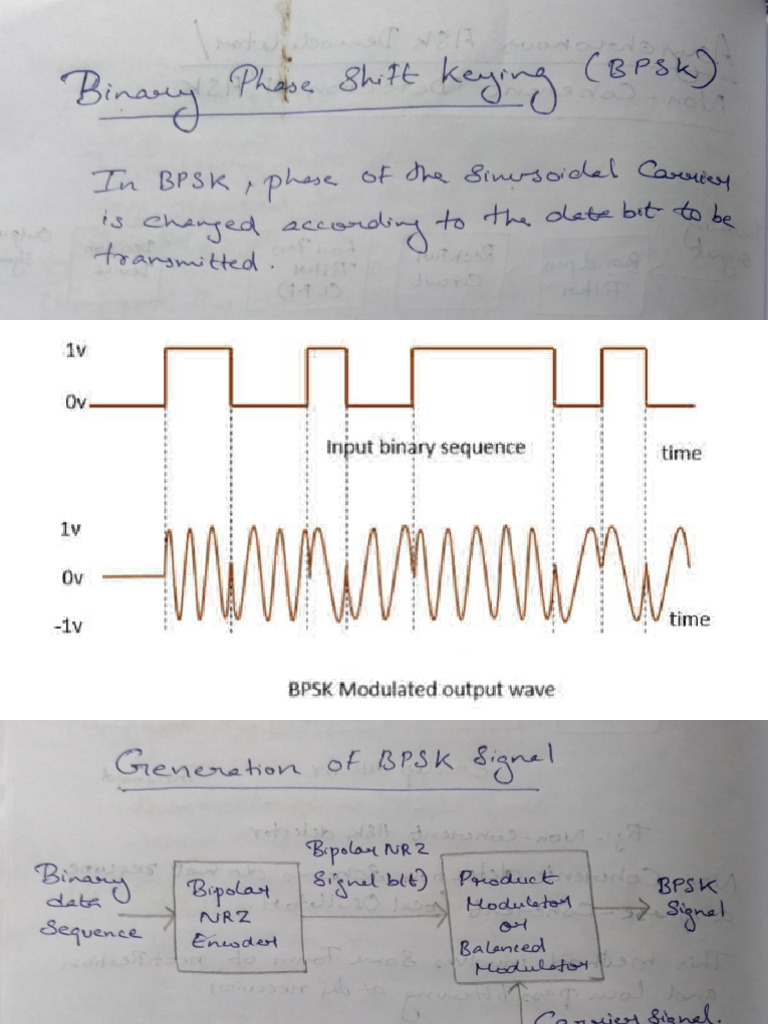 Binary Phase Shift Keying (BPSK)
In BPSK, phase of the Sinusoidal Carrier
is changed according to the data bit to be
transmitted.
1v
0v
Input binary sequence
time
1v
0v
-1v
time
BPSK Modulated output wave
Generation of BPSK Signal
Binary
data
Sequence
Bipolar
NRZ
Encoder
Bipolar NRZ
Signal b(t)
Product
Modulator
or
Balanced
Modulator
BPSK
Signal
Carrier Signal.